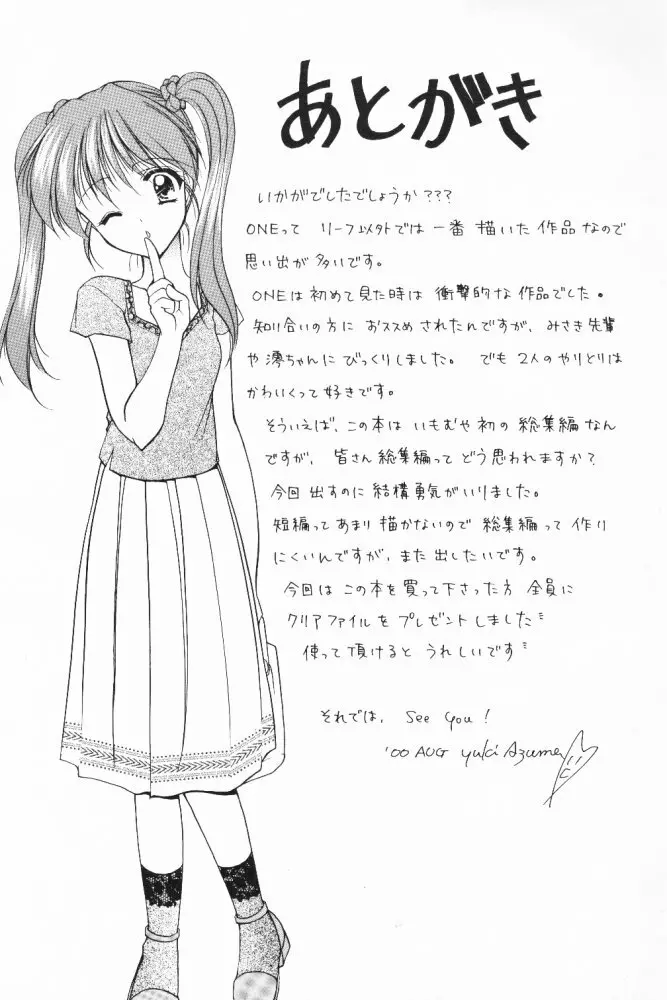 あとがき
いかがでしたでしょうか???
ONEって リーフ以外では 一番 描いた 作品 なので
思い出が 多いです。
ONEは 初めて 見た時は 衝撃的な 作品でした。
知り合いの方に おススメ されたんですが、みさき先輩
や 澪ちゃんに びっくりしました。 でも 2人の やりとりは
かわいくって 好きです。
そういえば、この本は いもむや 初の 総集編 なん
ですが、 皆さん 総集編って どう思われますか?
今回 出すのに 結構 勇気が いりました。
短編って あまり 描かないので 総集編って 作り
にくいんですが、また 出したいです。
今回は この本を 買って下さった方 全員に
クリアファイルを プレゼント しました〃
使って頂けると うれしいです〃
それでは、 See You!
'00 AUG Yuki Azuma